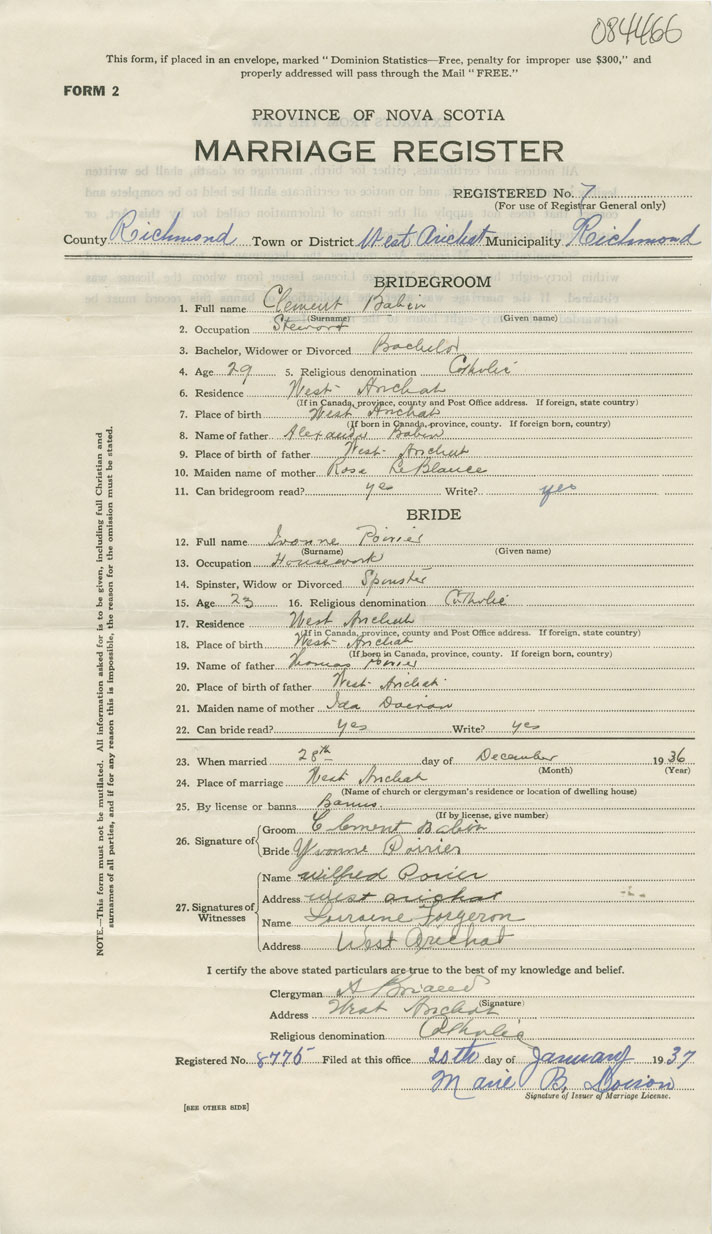 084466
This form, if placed in an envelope, marked "Dominion Statistics—Free, penalty for improper use $300," and
properly addressed will pass through the Mail "FREE."
FORM 2
PROVINCE OF NOVA SCOTIA
MARRIAGE REGISTER
REGISTERED No. 7
(For use of Registrar General only)
County Richmond Town or District West Arichat Municipality Richmond
BRIDEGROOM
1. Full name Clement Babin
(Surname) (Given name)
2. Occupation Steward
3. Bachelor, Widower or Divorced Bachelor
4. Age 29 5. Religious denomination Catholic
6. Residence West Arichat
(If in Canada, province, county and Post Office address. If foreign, state country)
7. Place of birth West Arichat
(If born in Canada, province, county. If foreign born, country)
8. Name of father Alexander Babin
9. Place of birth of father West Arichat
10. Maiden name of mother Rosa LeBlance
11. Can bridegroom read? yes Write? yes
BRIDE
12. Full name Ivonne Poirier
(Surname) (Given name)
13. Occupation Housework
14. Spinster, Widow or Divorced Spinster
15. Age 23 16. Religious denomination Catholic
17. Residence West Arichat
(If in Canada, province, county and Post Office address. If foreign, state country)
18. Place of birth West Arichat
(If born in Canada, province, county. If foreign born, country)
19. Name of father Thomas Poirier
20. Place of birth of father West Arichat
21. Maiden name of mother Ida Doiron
22. Can bride read? yes Write? yes
23. When married 28th day of December 1936
(Month) (Year)
24. Place of marriage West Arichat
(Name of church or clergyman's residence or location of dwelling house)
25. By license or banns Banns.
(If by license, give number)
26. Signature of Groom Clement Babin
Bride Yvonne Poirier
27. Signatures of Witnesses Name Wilfred Poirier
Address West Arichat
Name Lorraine Forgeron
Address West Arichat
I certify the above stated particulars are true to the best of my knowledge and belief.
Clergyman A
(Signature)
Address West Arichat
Religious denomination Catholic
Registered No. 8775 Filed at this office 20th day of January 1937
Marie B. Doiron
Signature of Issuer of Marriage License.
[SEE OTHER SIDE]
NOTE.—This form must not be mutilated. All information asked for is to be given, including full Christian and
surnames of all parties, and if for any reason this is impossible, the reason for the omission must be stated.